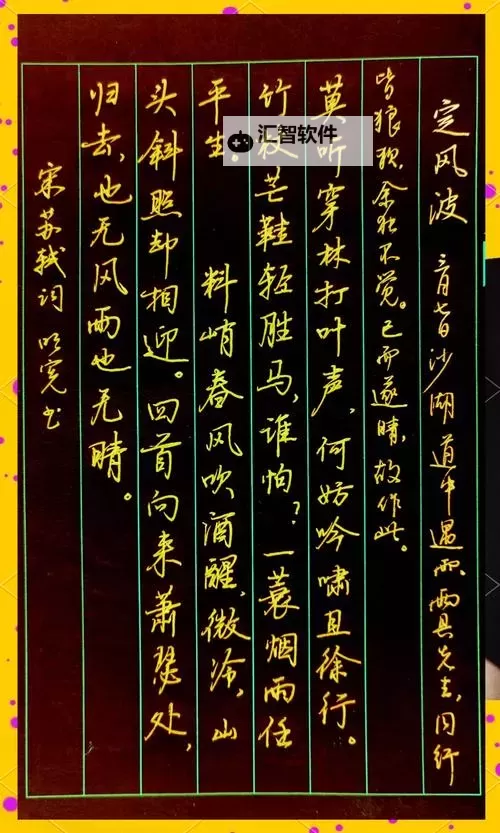 定风波 三月七日沙湖道中遇雨,雨具先去,同行
皆狼狈,余独不觉。已而遂晴,故作此。
莫听穿林打叶声,何妨吟啸且徐行。
竹杖芒鞋轻胜马,谁怕?一蓑烟雨任
平生。 料峭春风吹酒醒,微冷,山
头斜照却相迎。回首向来萧瑟处,
归去,也无风雨也无晴。
宋苏轼词 书
汇智软件